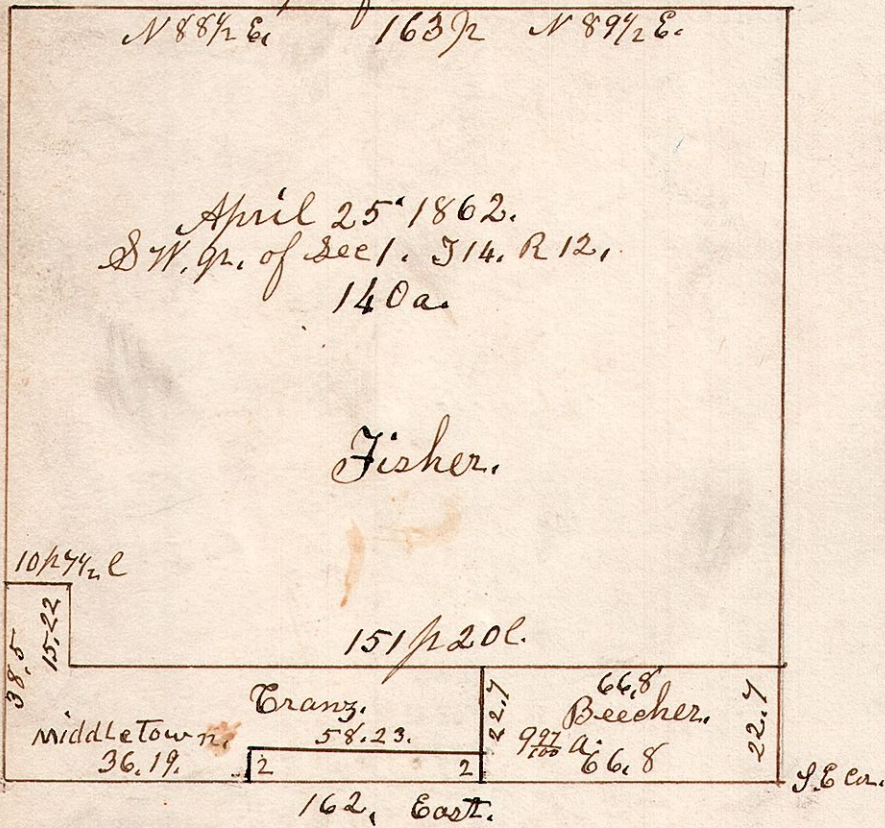 N 88 1/2 E. 163p N 89 1/2 E.
April 25. 1862.
S W. qr. of Sec 1. T 14. R 12,
140 a.
Fisher.
10p 7 1/2 l
38.5
15.22
151p 20l.
Cranz.
58.23.
Middletown.
36.19.
2
2
22.7
66.8
Beecher.
9 97/100 a.
66.8
22.7
S. E cor.
162, East.